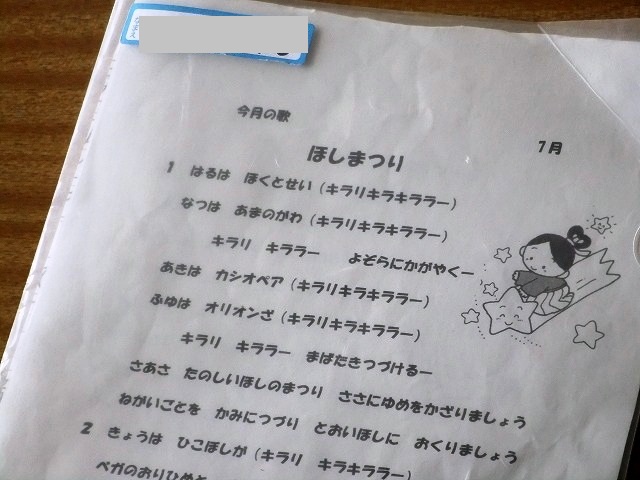 今月の歌
7月
ほしまつり
1 はるは ほくとせい(キラリキラキララー)
なつは あまのがわ(キラリキラキララー)
キラリ キララー よぞらにかがやくー
あきは カシオペア(キラリキラキララー)
ふゆは オリオンざ(キラリキラキララー)
キラリ キララー まばたきつづけるー
さあさ たのしいほしのまつり ささにゆめをかざりましょう
ねがいごとを かみにつづり とおいほしに おくりましょう
2 きょうは ひこぼしが(キラリ キラキララー)
ベガのおりひめと